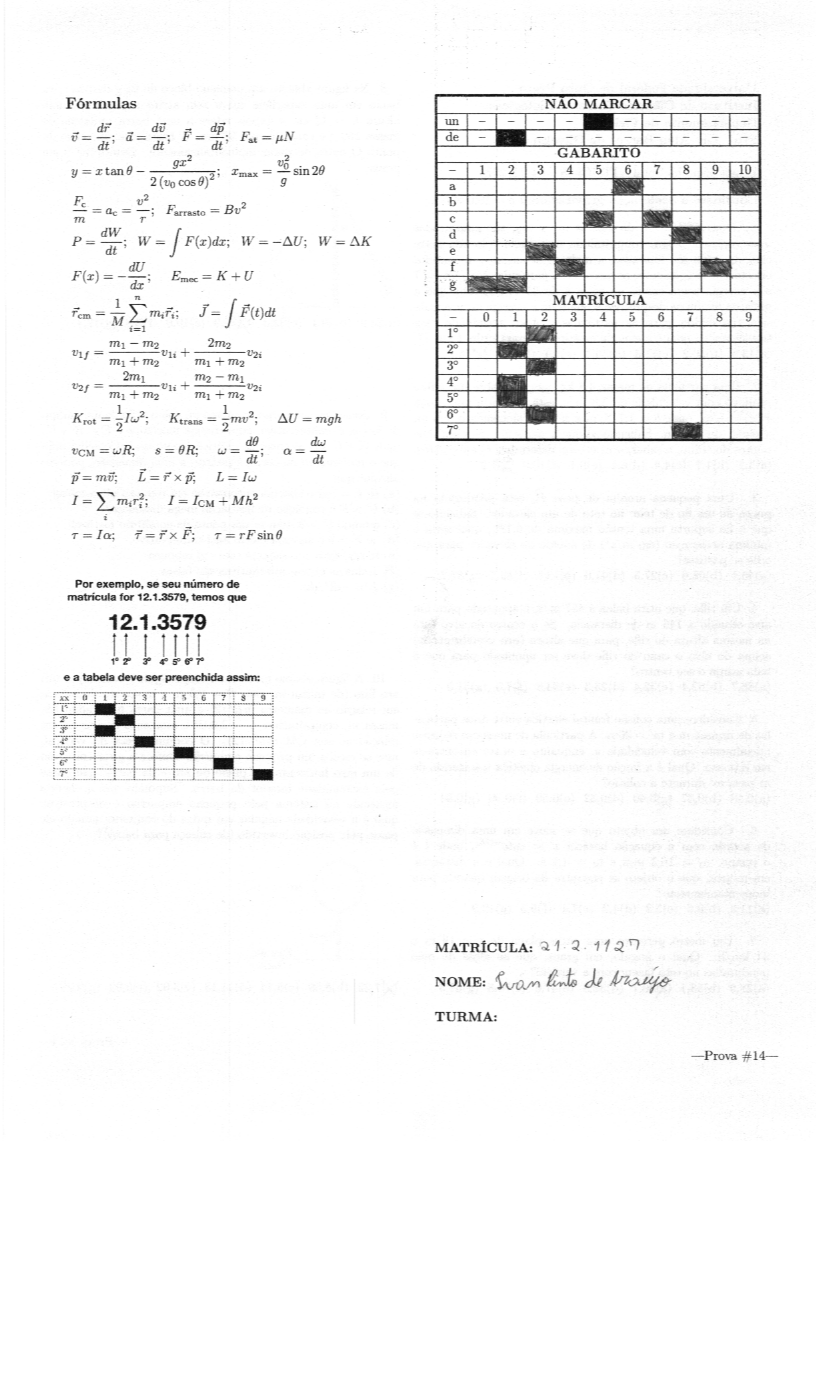 Fórmulas
$\vec{v} = \dfrac{d\vec{r}}{dt}$; $\vec{a} = \dfrac{d\vec{v}}{dt}$; $\vec{F} = \dfrac{d\vec{p}}{dt}$; $F_{\text{at}} = \mu N$
$y = x\tan\theta - \dfrac{gx^2}{2(v_0\cos\theta)^2}$; $x_{\max} = \dfrac{v_0^2}{g}\sin 2\theta$
$\dfrac{F_c}{m} = a_c = \dfrac{v^2}{r}$; $F_{\text{arrasto}} = Bv^2$
$P = \dfrac{dW}{dt}$; $W = \int F(x)dx$; $W = -\Delta U$; $W = \Delta K$
$F(x) = -\dfrac{dU}{dx}$; $E_{\text{mec}} = K + U$
$\vec{r}_{\text{cm}} = \dfrac{1}{M}\sum_{i=1}^{n} m_i\vec{r}_i$; $\vec{J} = \int \vec{F}(t)dt$
$v_{1f} = \dfrac{m_1 - m_2}{m_1 + m_2}v_{1i} + \dfrac{2m_2}{m_1 + m_2}v_{2i}$
$v_{2f} = \dfrac{2m_1}{m_1 + m_2}v_{1i} + \dfrac{m_2 - m_1}{m_1 + m_2}v_{2i}$
$K_{\text{rot}} = \dfrac{1}{2}I\omega^2$; $K_{\text{trans}} = \dfrac{1}{2}mv^2$; $\Delta U = mgh$
$v_{\text{CM}} = \omega R$; $s = \theta R$; $\omega = \dfrac{d\theta}{dt}$; $\alpha = \dfrac{d\omega}{dt}$
$\vec{p} = m\vec{v}$; $\vec{L} = \vec{r} \times \vec{p}$; $L = I\omega$
$I = \sum_i m_i r_i^2$; $I = I_{\text{CM}} + Mh^2$
$\tau = I\alpha$; $\vec{\tau} = \vec{r} \times \vec{F}$; $\tau = rF\sin\theta$
Por exemplo, se seu número de
matrícula for 12.1.3579, temos que
12.1.3579
1º 2º 3º 4º 5º 6º 7º
e a tabela deve ser preenchida assim:
xx 0 1 2 3 4 5 6 7 8 9
1º
2º
3º
4º
5º
6º
7º
NÃO MARCAR
un – – – – – – – – –
de – – – – – – – – –
GABARITO
– 1 2 3 4 5 6 7 8 9 10
a
b
c
d
e
f
g
MATRÍCULA
– 0 1 2 3 4 5 6 7 8 9
1º
2º
3º
4º
5º
6º
7º
MATRÍCULA: 21.2.1127
NOME: Ivan Pinto de Araújo
TURMA:
—Prova #14—